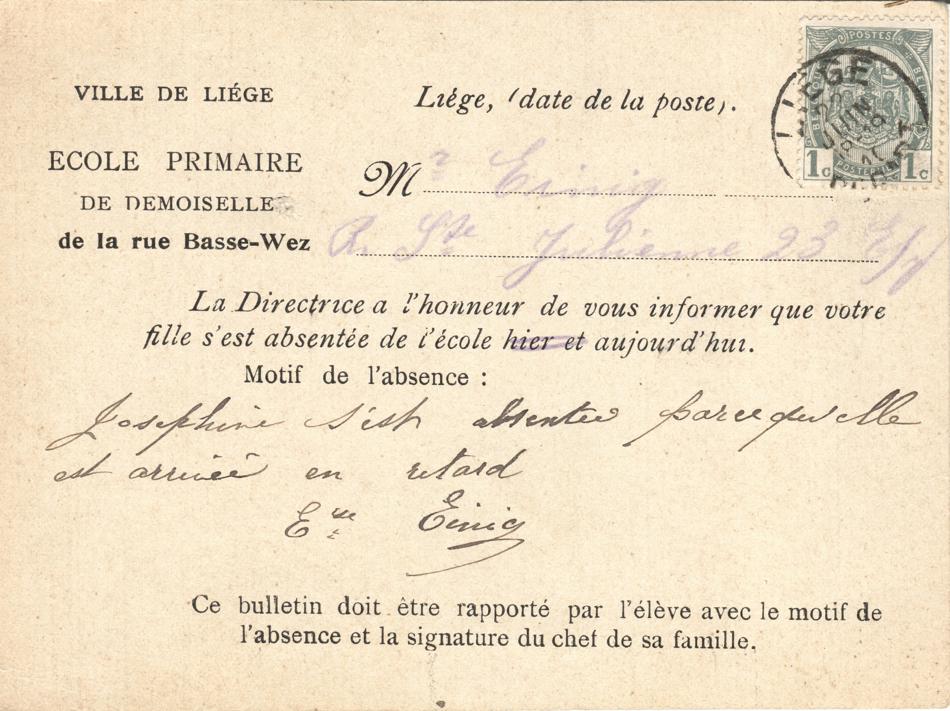 VILLE DE LIÉGE
Liége, (date de la poste).
ECOLE PRIMAIRE
DE DEMOISELLE
de la rue Basse-Wez
Mr Einig
R. Ste Julienne 23 E/V
La Directrice a l'honneur de vous informer que votre
fille s'est absentée de l'école hier et aujourd'hui.
Motif de l'absence :
Joséphine s'est absentée parcequ'elle
est arrivée en retard
Einig
Ce bulletin doit être rapporté par l'élève avec le motif de
l'absence et la signature du chef de sa famille.
POSTES
1c 1c
POSTERIJEN
LIÈGE
JUIN